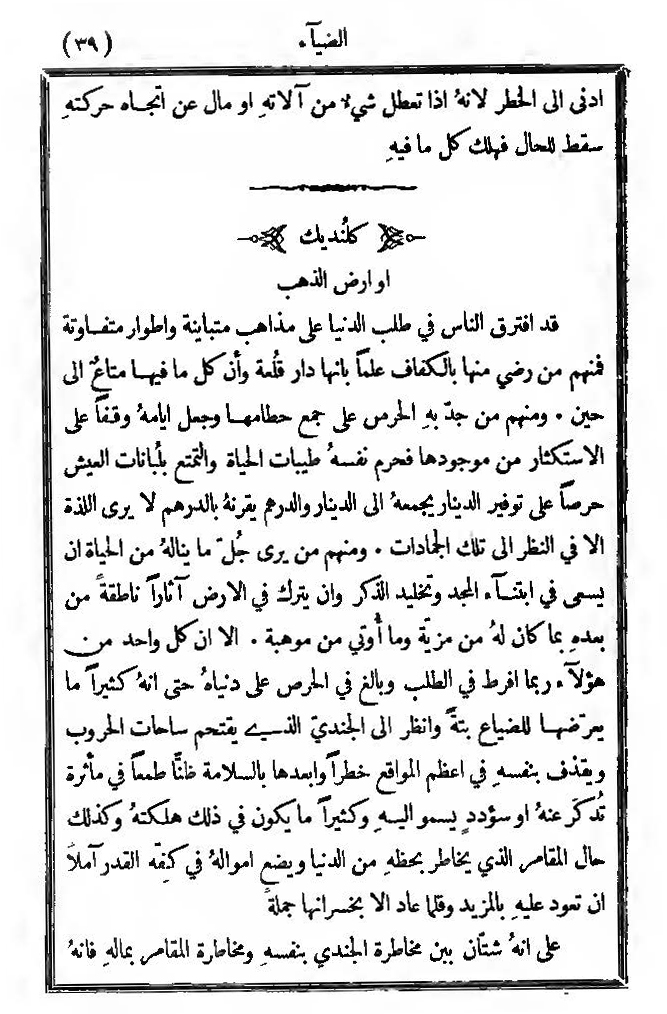 الضيآء
(٣٩)
ادنى الى الخطر لانهُ اذا تعطل شيء من آلاتهِ او مال عن اتجاه حركتهِ
سقط للحال فهلك كل ما فيهِ
كلُنديك
او ارض الذهب
قد افترق الناس في طلب الدنيا على مذاهب متباينة واطوار متفاوتة
فمنهم من رضي منها بالكفاف علماً بانها دار قُلعة وأن كل ما فيها متاعٌ الى
حين ٠ ومنهم من جدّ بهِ الحرص على جمع حطامها وجعل ايامهُ وقفاً على
الاستكثار من موجودها فحرم نفسهُ طيبات الحياة والتمتع بلُبانات العيش
حرصاً على توفير الدينار يجمعهُ الى الدينار والدرهم يقرنهُ بالدرهم لا يرى اللذة
الا في النظر الى تلك الجمادات ٠ ومنهم من يرى جُلّ ما ينالهُ من الحياة ان
يسعى في ابتنآء المجد وتخليد الذكر وان يترك في الارض آثاراً ناطقةً من
بعدهِ بما كان لهُ من مزيّة وما أُوتي من موهبة ٠ الا ان كل واحد من
هؤلآء ربما افرط في الطلب وبالغ في الحرص على دنياهُ حتى انهُ كثيراً ما
يعرّضها للضياع بتةً وانظر الى الجنديّ الذي يقتحم ساحات الحروب
ويقذف بنفسهِ في اعظم المواقع خطراً وابعدها بالسلامة ظنًّا طمعاً في مأثرة
تُذكَر عنهُ او سؤددٍ يسمو اليهِ وكثيراً ما يكون في ذلك هلكتهُ وكذلك
حال المقامر الذي يخاطر بحظهِ من الدنيا ويضع اموالهُ في كفّة القدر آملاً
ان تعود عليهِ بالمزيد وقلما عاد الا بخسرانها جملةً
على انهُ شتّان بين مخاطرة الجندي بنفسهِ ومخاطرة المقامر بمالهِ فانهُ